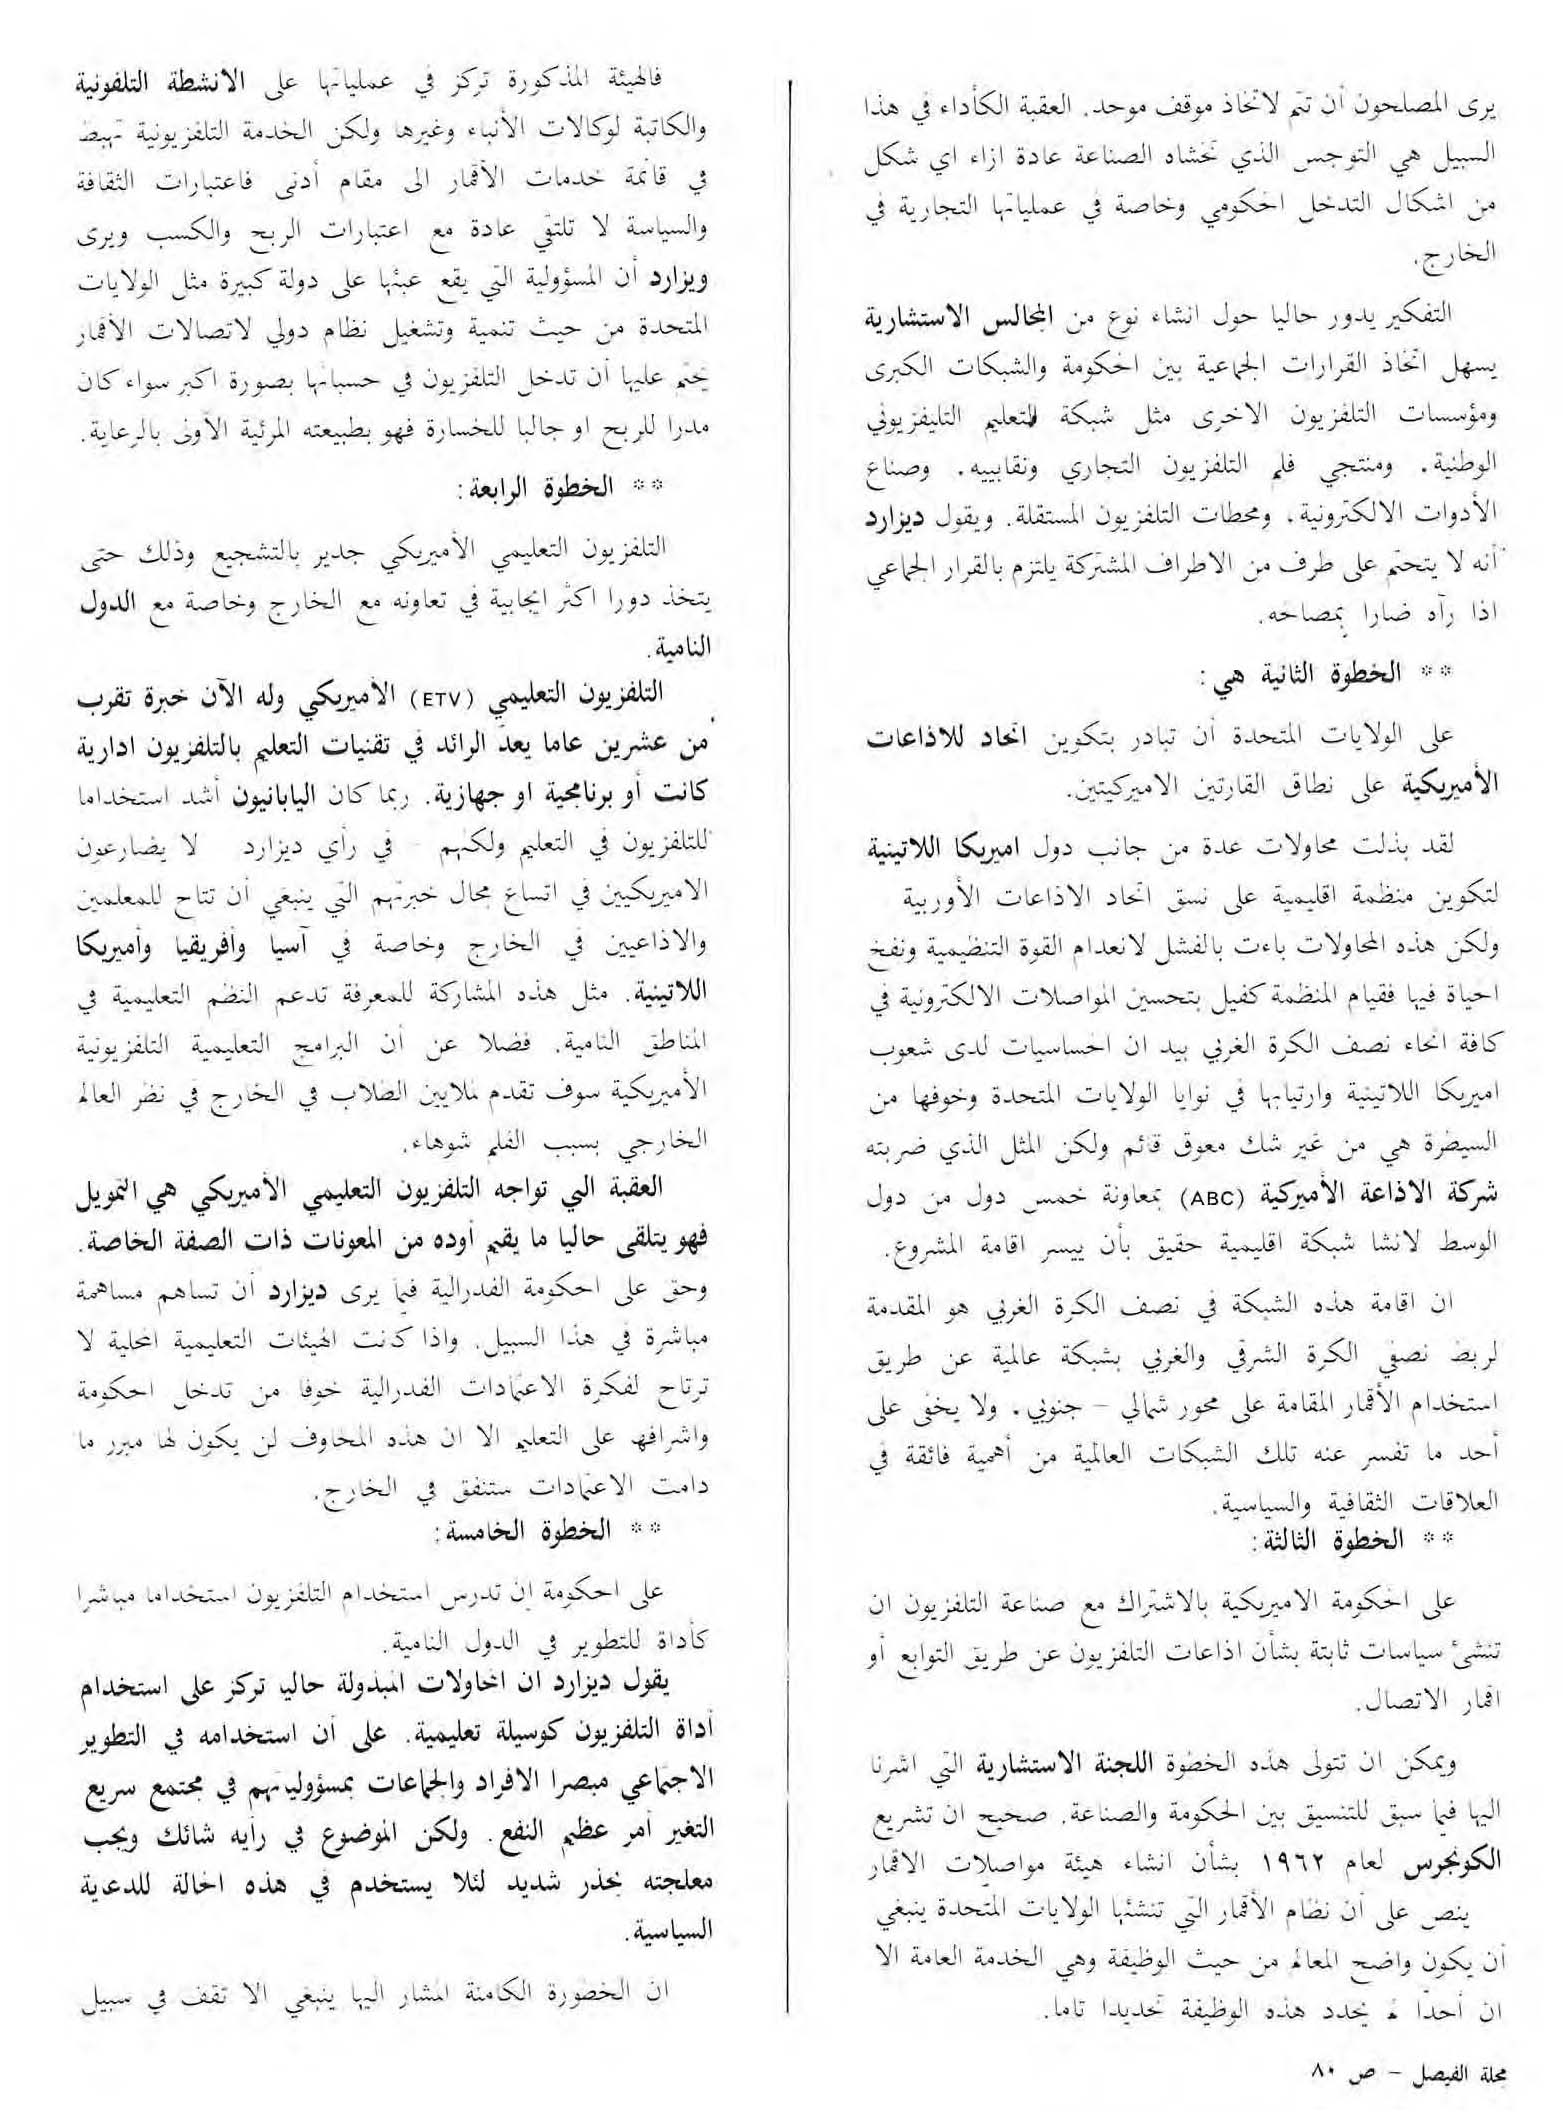 يرى المصلحون أن تتم لاتخاذ موقف موحد. العقبة الكأداء في هذا
السبيل هي التوجس الذي تخشاه الصناعة عادة ازاء اي شكل
من اشكال التدخل الحكومي وخاصة في عملياتها التجارية في
الخارج.
التفكير يدور حاليا حول انشاء نوع من المجالس الاستشارية
يسهل اتخاذ القرارات الجماعية بين الحكومة والشبكات الكبرى
ومؤسسات التلفزيون الاخرى مثل شبكة التعليم التليفزيوني
الوطنية. ومنتجي فلم التلفزيون التجاري ونقابييه. وصناع
الأدوات الالكترونية. ومحطات التلفزيون المستقلة. ويقول ديزارد
أنه لا يتحتم على طرف من الاطراف المشتركة يلتزم بالقرار الجماعي
اذا رآه ضارا بمصالحه.
** الخطوة الثانية هي:
على الولايات المتحدة أن تبادر بتكوين اتحاد للاذاعات
الأميريكية على نطاق القارتين الاميركيتين.
لقد بذلت محاولات عدة من جانب دول اميريكا اللاتينية
لتكوين منظمة اقليمية على نسق اتحاد الاذاعات الأوربية
ولكن هذه المحاولات باءت بالفشل لانعدام القوة التنظيمية ونفخ
الحياة فيها فقيام المنظمة كفيل بتحسين المواصلات الالكترونية في
كافة انحاء نصف الكرة الغربي بيد ان الحساسيات لدى شعوب
اميريكا اللاتينية وارتيابها في نوايا الولايات المتحدة وخوفها من
السيطرة هي من غير شك معوق قائم ولكن المثل الذي ضربته
شركة الاذاعة الأميركية (ABC) بمعاونة خمس دول من دول
الوسط لانشا شبكة اقليمية حقيق بأن ييسر اقامة المشروع.
ان اقامة هذه الشبكة في نصف الكرة الغربي هو المقدمة
لربط نصفي الكرة الشرقي والغربي بشبكة عالمية عن طريق
استخدام الأقمار المقامة على محور شمالي - جنوبي. ولا يخفى على
أحد ما تفسر عنه تلك الشبكات العالمية من أهمية فائقة في
العلاقات الثقافية والسياسية.
** الخطوة الثالثة:
على الحكومة الاميريكية بالاشتراك مع صناعة التلفزيون ان
تنشئ سياسات ثابتة بشأن اذاعات التلفزيون عن طريق التوابع أو
اقمار الاتصال.
ويمكن ان تتولى هذه الخطوة اللجنة الاستشارية التي اشرنا
اليها فيما سبق للتنسيق بين الحكومة والصناعة. صحيح ان تشريع
الكونجرس لعام ١٩٦٢ بشأن انشاء هيئة مواصلات الاقمار
ينص على أن نظام الأقمار التي تنشئها الولايات المتحدة ينبغي
أن يكون واضح المعالم من حيث الوظيفة وهي الخدمة العامة الا
ان أحدا لم يحدد هذه الوظيفة تحديدا تاما.
فالهيئة المذكورة تركز في عملياتها على الانشطة التلفونية
والكاتبة لوكالات الأنباء وغيرها ولكن الخدمة التلفزيونية تهبط
في قائمة خدمات الأقمار الى مقام أدنى فاعتبارات الثقافة
والسياسة لا تلتقي عادة مع اعتبارات الربح والكسب ويرى
ويزارد أن المسؤولية التي يقع عبئها على دولة كبيرة مثل الولايات
المتحدة من حيث تنمية وتشغيل نظام دولي لاتصالات الأقمار
يحتم عليها أن تدخل التلفزيون في حسبانها بصورة اكبر سواء كان
مدرا للربح او جالبا للخسارة فهو بطبيعته المرئية الأولى بالرعاية.
** الخطوة الرابعة:
التلفزيون التعليمي الأميريكي جدير بالتشجيع وذلك حتى
يتخذ دورا اكثر ايجابية في تعاونه مع الخارج وخاصة مع الدول
النامية.
التلفزيون التعليمي (ETV) الأميريكي وله الآن خبرة تقرب
من عشرين عاما يعد الرائد في تقنيات التعليم بالتلفزيون ادارية
كانت أو برنامجية او جهازية. ربما كان اليابانيون أشد استخداما
للتلفزيون في التعليم ولكنهم - في رأي ديزارد لا يضارعون
الاميريكيين في اتساع مجال خبرتهم التي ينبغي أن تتاح للمعلمين
والاذاعيين في الخارج وخاصة في آسيا وأفريقيا وأميريكا
اللاتينية. مثل هذه المشاركة للمعرفة تدعم النظم التعليمية في
المناطق النامية. فضلا عن أن البرامج التعليمية التلفزيونية
الأميريكية سوف تقدم لملايين الطلاب في الخارج في نظر العالم
الخارجي بسبب الفلم شوهاء.
العقبة التي تواجه التلفزيون التعليمي الأميريكي هي التمويل
فهو يتلقى حاليا ما يقيم أوده من المعونات ذات الصفة الخاصة.
وحق على الحكومة الفدرالية فيما يرى ديزارد أن تساهم مساهمة
مباشرة في هذا السبيل. واذا كانت الهيئات التعليمية المحلية لا
ترتاح لفكرة الاعتمادات الفدرالية خوفا من تدخل الحكومة
واشرافها على التعليم الا ان هذه المخاوف لن يكون لها مبرر ما
دامت الاعتمادات ستنفق في الخارج.
** الخطوة الخامسة:
على الحكومة ان تدرس استخدام التلفزيون استخداما مباشرا
كأداة للتطوير في الدول النامية.
يقول ديزارد ان المحاولات المبذولة حاليا تركز على استخدام
أداة التلفزيون كوسيلة تعليمية. على أن استخدامه في التطوير
الاجتماعي مبصرا الافراد والجماعات بمسؤولياتهم في مجتمع سريع
التغير أمر عظيم النفع. ولكن الموضوع في رأيه شائك ويجب
معلجته بحذر شديد لئلا يستخدم في هذه الحالة للدعاية
السياسية.
ان الخطورة الكامنة المشار اليها ينبغي الا تقف في سبيل
مجلة الفيصل - ص ٨٠